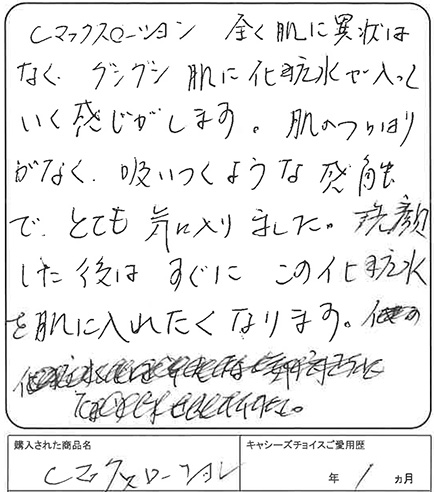 Cマックスローション 全く肌に異状は
なく、グングン肌に化粧水が入って
いく感じがします。肌のつっぱり
がなく、吸いつくような感触
で、とても気に入りました。洗顔
した後は すぐに この化粧水
を肌に入れたくなります。他の
購入された商品名
キャシーズチョイスご愛用歴
Cマックスローション
年 1 ヵ月